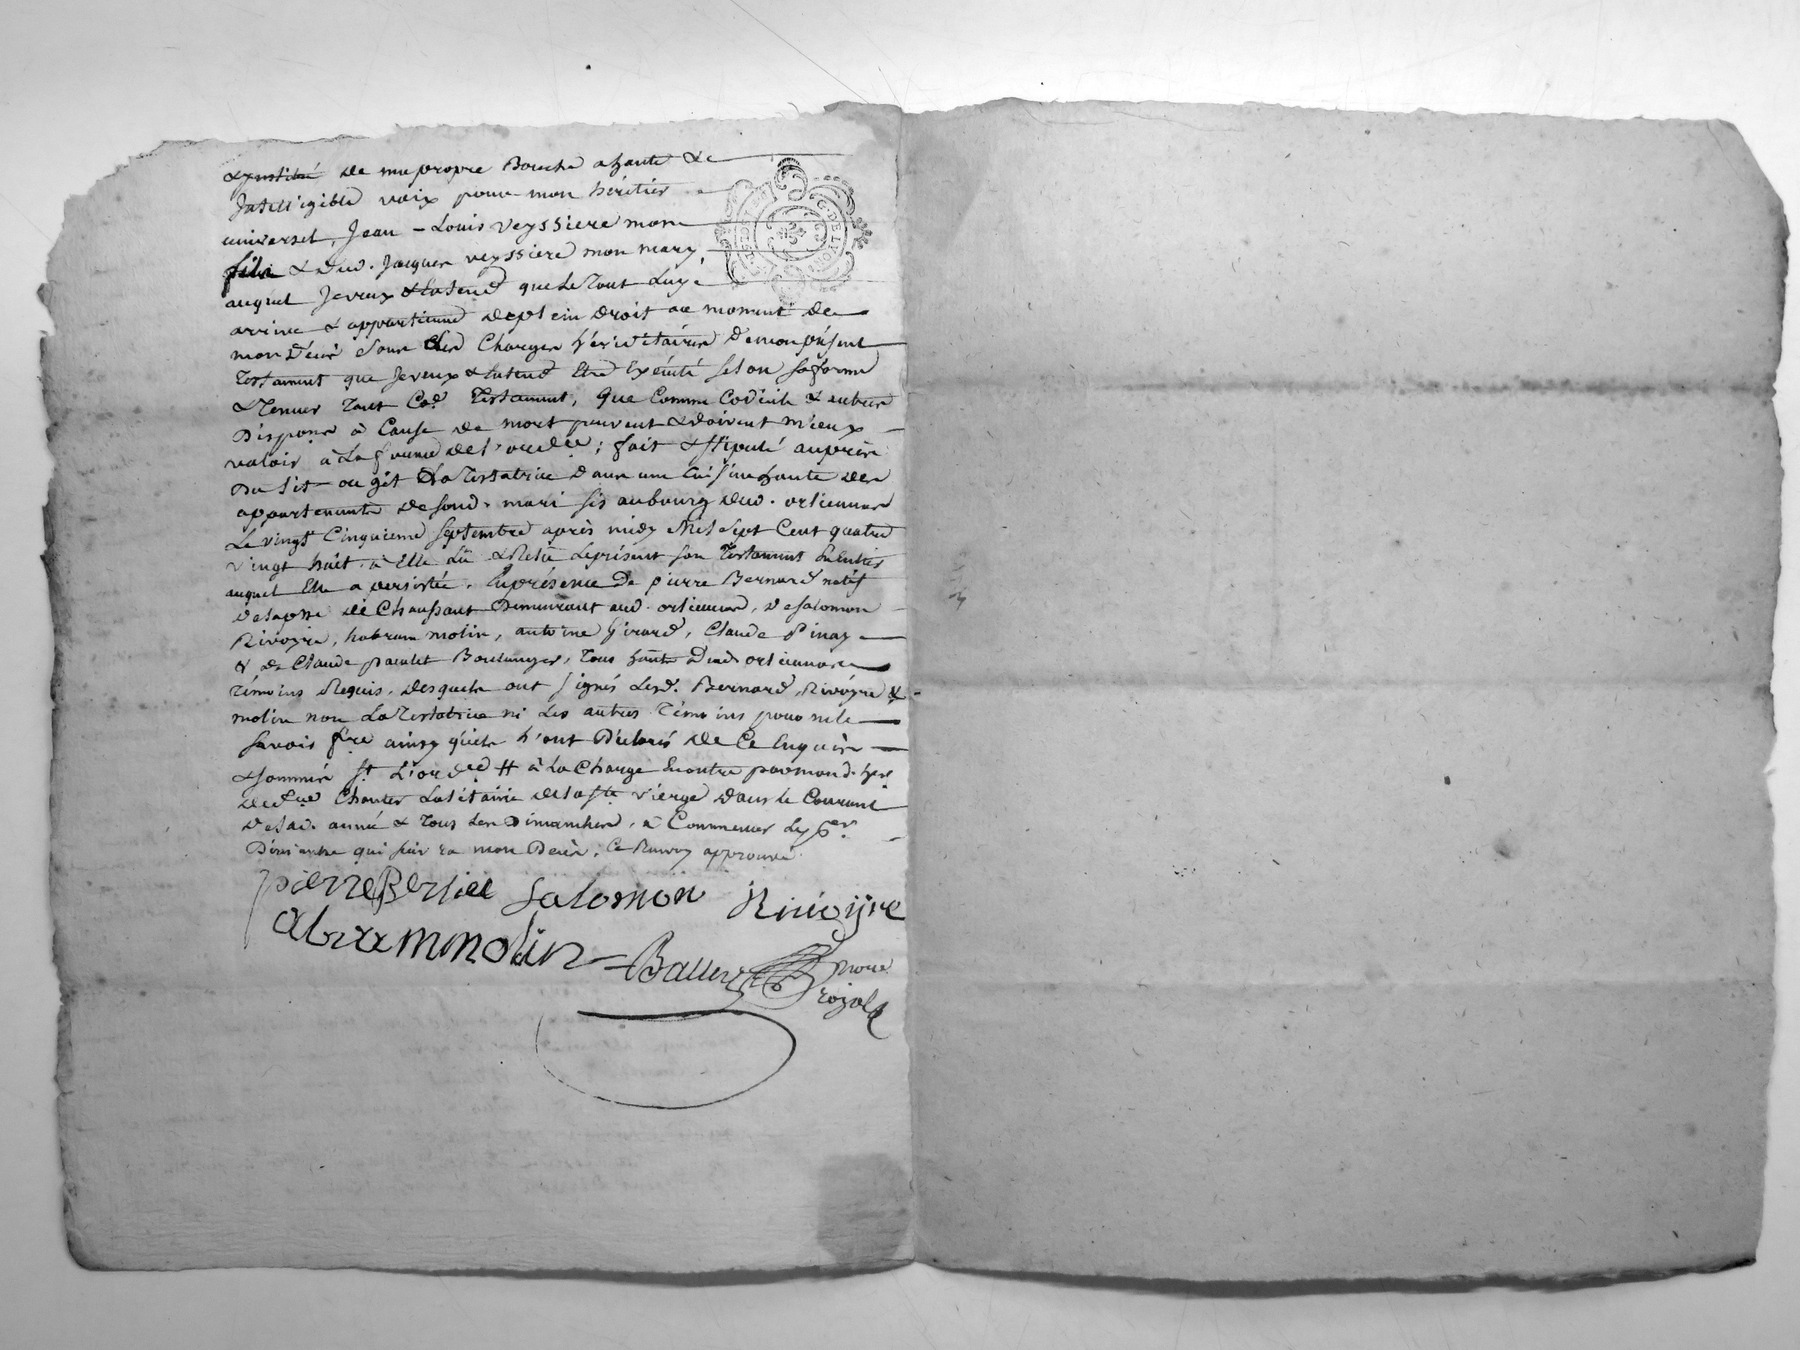 & institué de ma propre Bouche a haute &
Jntell'igible voix pour mon héritier
universel, Jean - Louis Veyssiere mon
fils & dud. Jacques veyssiere mon mary,
auquel Je veux & Entend que le Tout luy
arrive & appartienne de plein droit au moment de
mon décès sous les Charges héréditaires de mon présent
Testament que Je veux & Entend Etre Exécuté selon sa forme
& Teneur Tant Côe Testament, que Comme Codicile & autres
Dispons à Cause de mort peuvent & doivent mieux
valoir à la forme de l'ordce; fait & stipulé auprès
Du lit ou git la Testatrice dans une Cuisine haute des
appartements de sond. mari sis au bourg dud. orlienas
Le vingt Cinquieme septembre après midy Mil sept Cent quatre
vingt huit. à Elle Lû & Relû le présent son Testament En Entier
auquel Elle a persistée. En présence De pierre Bernard natif
de la psse de Chaussant Demeurant aud. orlienas, de salomon
Rivoyre, habram molin, antoine Girard, Claude Pinay
& de Claude paulet Boulanger, Tous hants Dud. orlienas
Témoins Requis, desquels ont signés Lesd. Bernard, Rivoyre &
molin non La Testatrice ni Les autres Témoins pour ne le
savoir fre ainsy qu'ils l'ont Déclarés de Ce Enquis
& sommés st. L'ordce # à la Charge En outre par mond. her
de fre Chanter La litanie de la ste vierge dans le Courant
de lad. année & Tous les Dimanches, à Commencer le per
Dimanche qui suivra mon Décès, Ce Renvoy approuvé
pierre Bernard Salomon Rivoiyre
Abram molin
Notre
royal